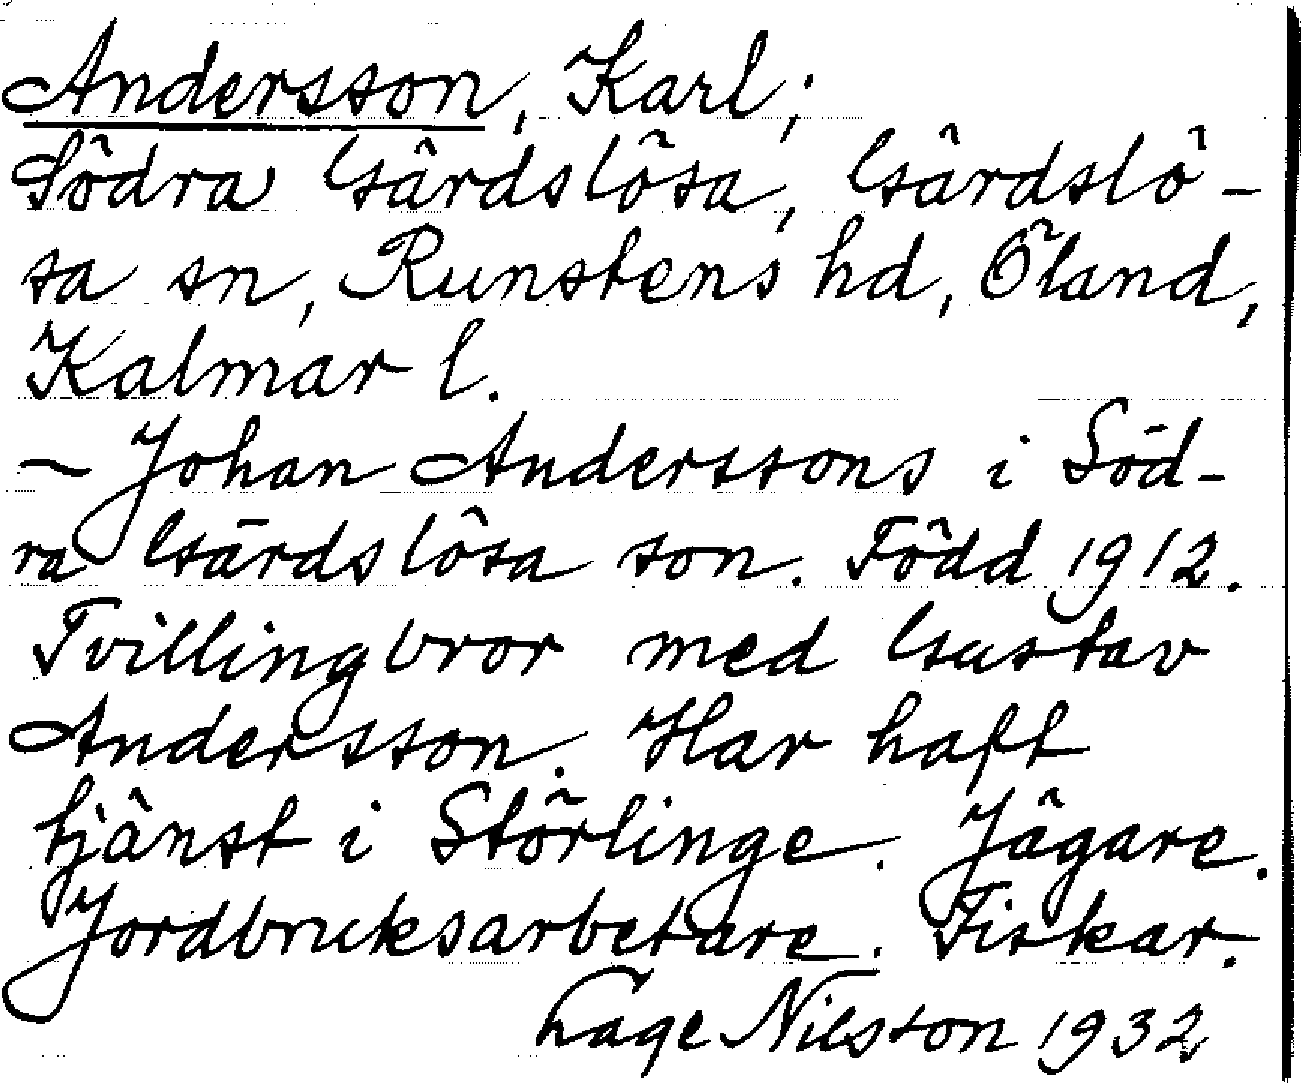 Andersson, Karl;
Södra Gärdslösa, Gärdslö-
sa sn, Runstens hd, Öland,
Kalmar l.
– Johan Anderssons i Söd-
ra Gärdslösa son. Född 1912.
Tvillingbror med Gustav
Andersson. Har haft
tjänst i Störlinge. Jägare.
Jordbruksarbetare. Fiskar.
Hage Nilsson 1932